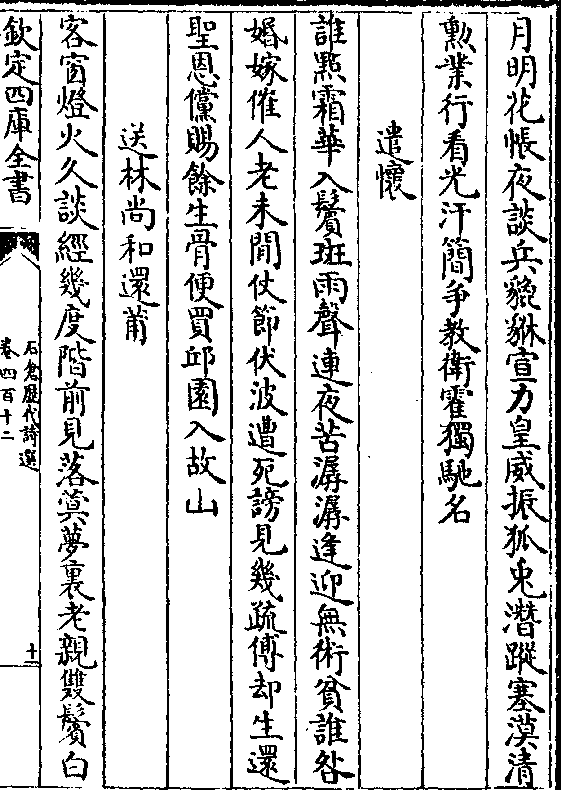 月明花帳夜談兵貔貅宣力皇威振狐兎潛蹤塞漠清
勲業行看光汗簡爭教衛霍獨馳名
遣懷
誰㸃霜華入鬢斑雨聲連夜苦潺潺逢迎無術貧誰咎
婚嫁催人老未閒仗節伏波遭死謗見幾疏傅却生還
聖恩儻賜餘生骨便買邱園入故山
送林尚和還莆
客窗燈火久談經幾度階前見落蓂夢裏老親雙鬢白
欽定四庫全書
石倉歷代詩選
卷四百十二
十